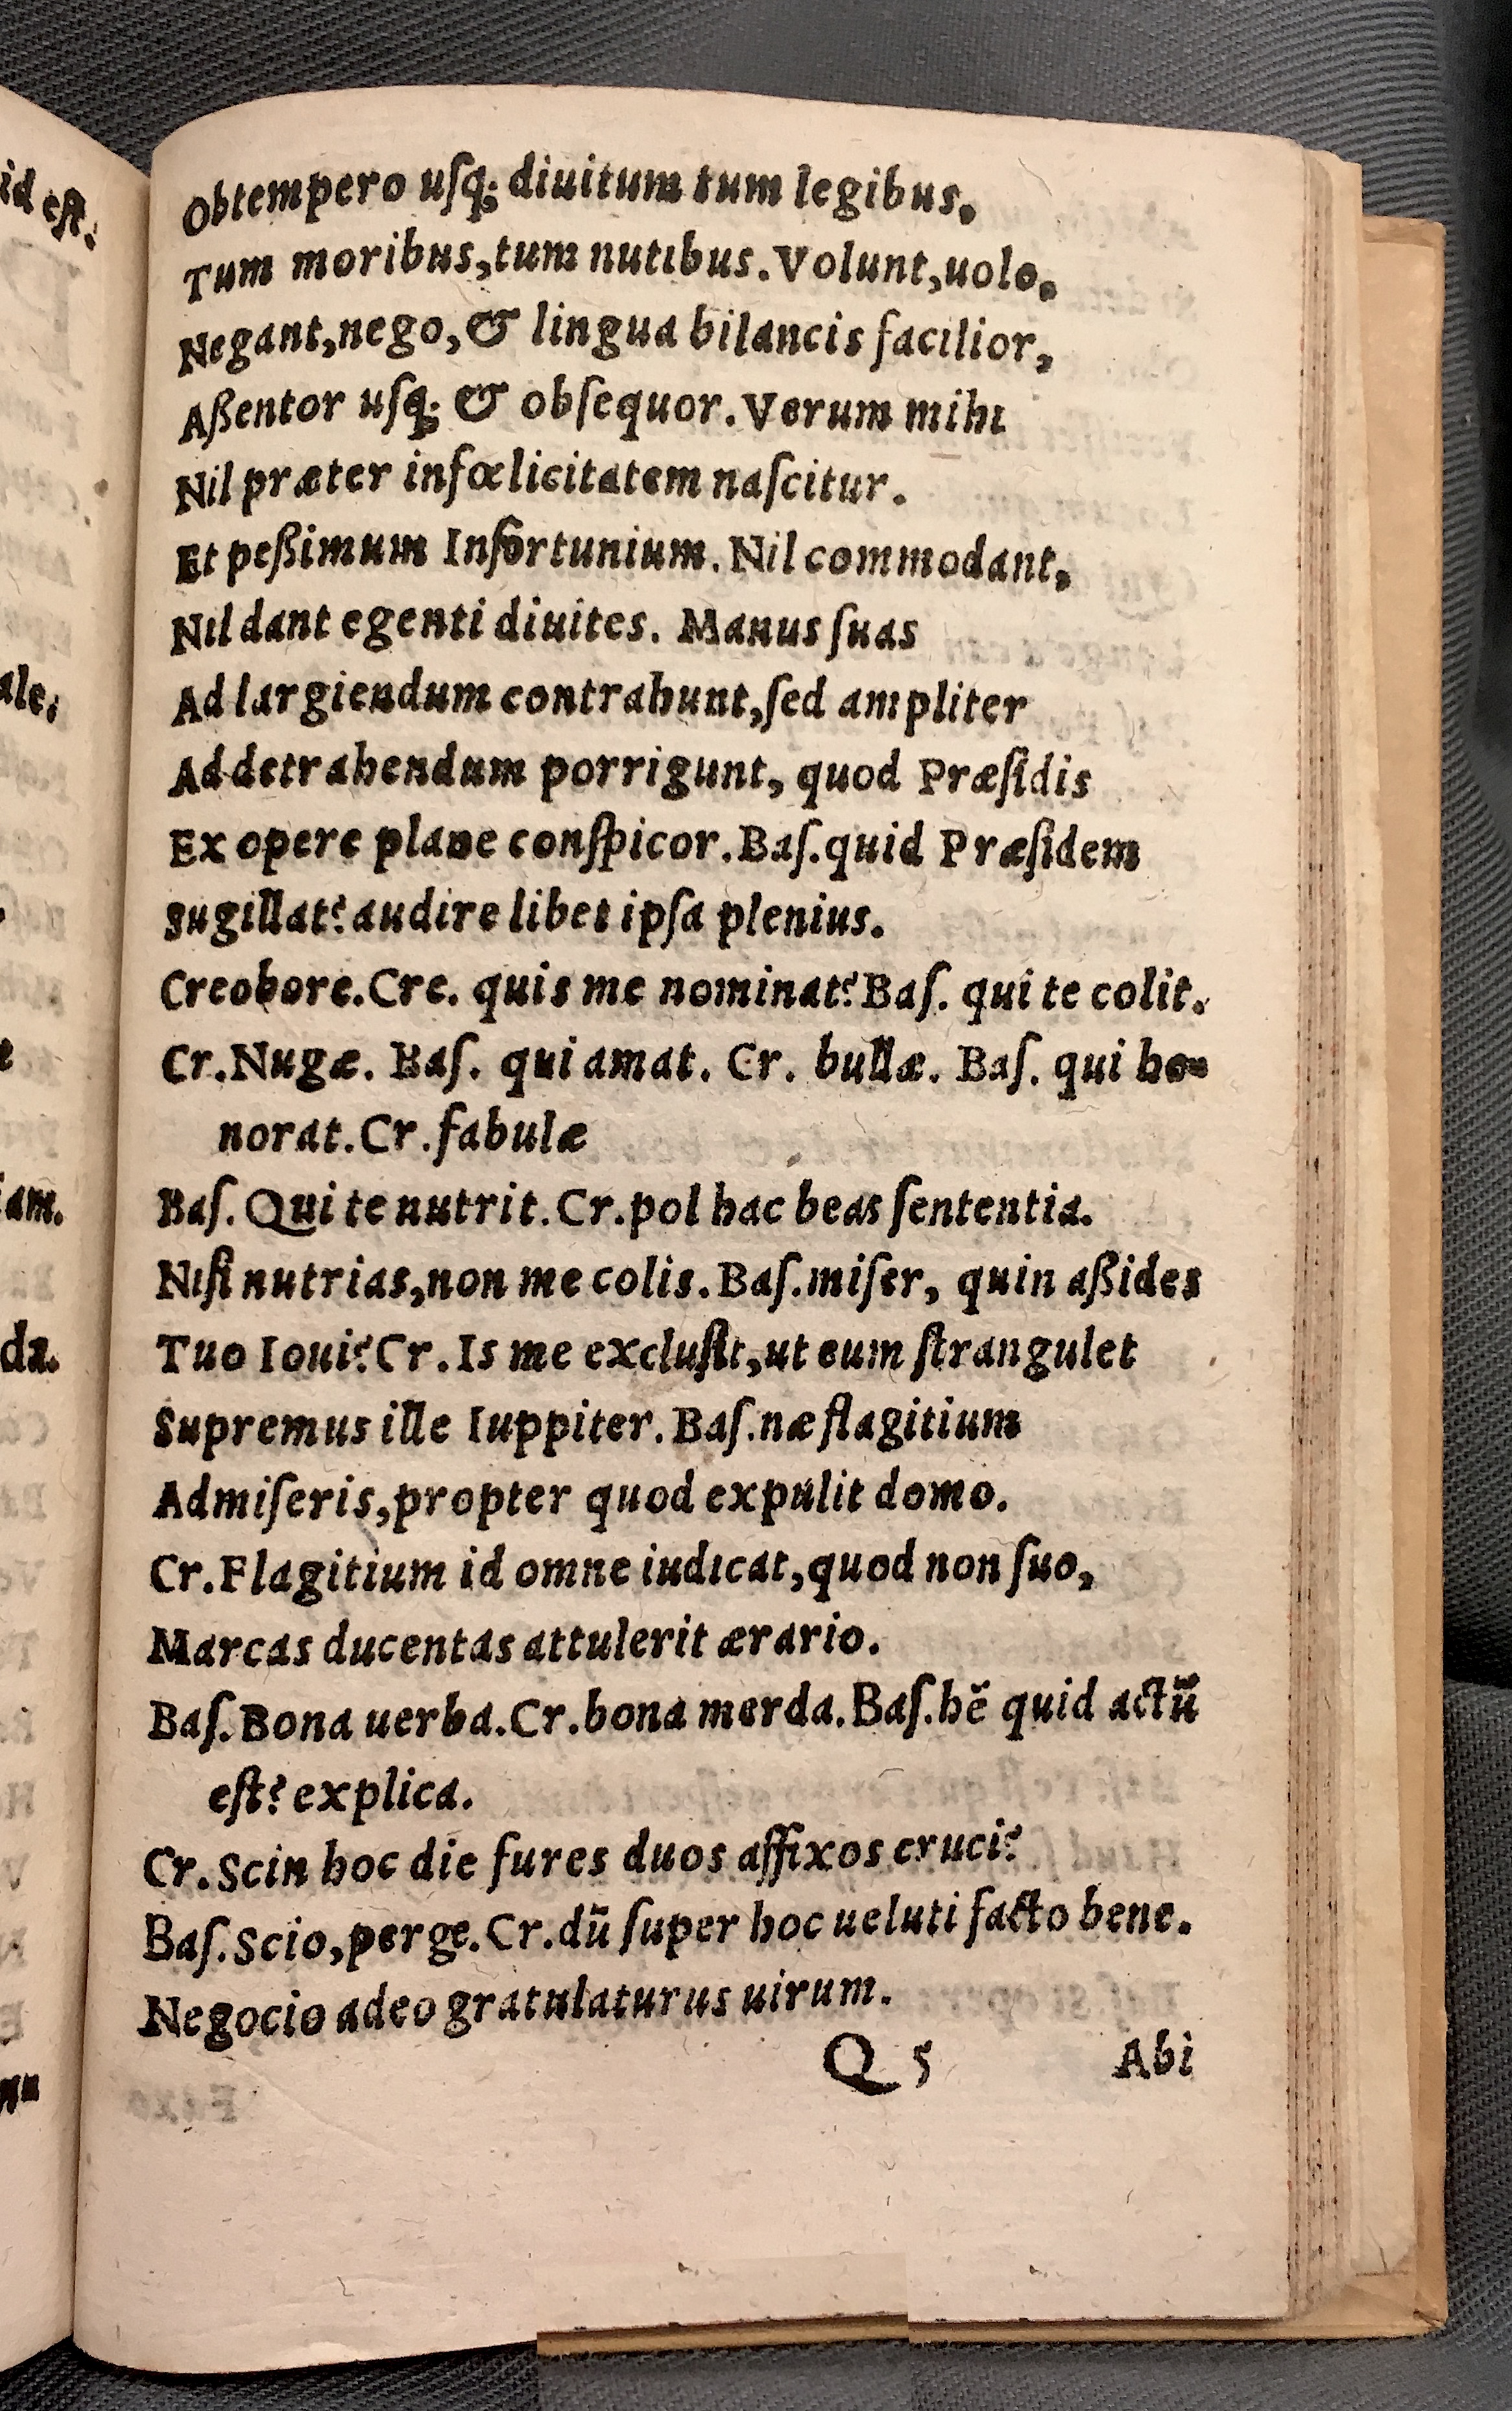 Obtempero uſq; diuitum tum legibus.
Tum moribus,tum nutibus.Volunt,uolo.
Negant,nego,& lingua bilancis facilior,
Aßentor uſq; & obſequor.Verum mihi
Nil præter infœlicitatem naſcitur.
Et peßimum Infortunium.Nil commodant,
Nil dant egenti diuites. Manus ſuas
Ad largiendum contrahunt,ſed ampliter
Ad detrahendum porrigunt, quod Præſidis
Ex opere plane conſpicor.Baſ.quid Præſidem
Sugillat?audire libet ipſa plenius.
Creobore.Cre. quis me nominat?Baſ. qui te colit.
Cr.Nugæ. Baſ. qui amat. Cr. bullæ. Baſ. qui ho-
norat.Cr.fabulæ
Baſ. Qui te nutrit.Cr.pol hac beas ſententia.
Niſi nutrias,non me colis.Baſ.miſer, quin aßides
Tuo Ioui?Cr.Is me excluſit,ut eum ſtrangulet
Supremus ille Iuppiter.Baſ.næ flagitium
Admiſeris,propter quod expulit domo.
Cr.Flagitium id omne iudicat,quod non ſuo,
Marcas ducentas attulerit ærario.
Baſ.Bona uerba.Cr.bona merda.Baſ.hẽ quid actũ
eſt?explica.
Cr.Scin hoc die fures duos affixos cruci?
Baſ.Scio,perge.Cr.dũ ſuper hoc ueluti facto bene.
Negocio adeo gratulaturus uirum.
Q 5 Abi